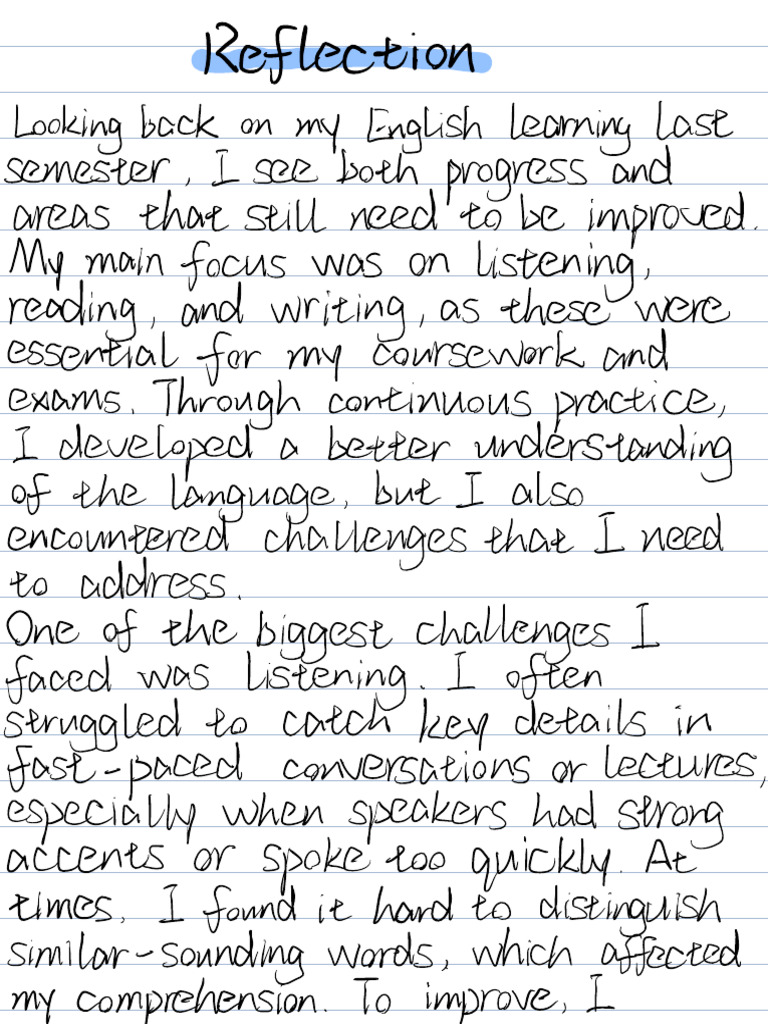 Reflection
Looking back on my English learning last
semester, I see both progress and
areas that still need to be improved.
My main focus was on listening,
reading, and writing, as these were
essential for my coursework and
exams. Through continuous practice,
I developed a better understanding
of the language, but I also
encountered challenges that I need
to address.
One of the biggest challenges I
faced was listening. I often
struggled to catch key details in
fast-paced conversations or lectures,
especially when speakers had strong
accents or spoke too quickly. At
times, I found it hard to distinguish
similar-sounding words, which affected
my comprehension. To improve, I